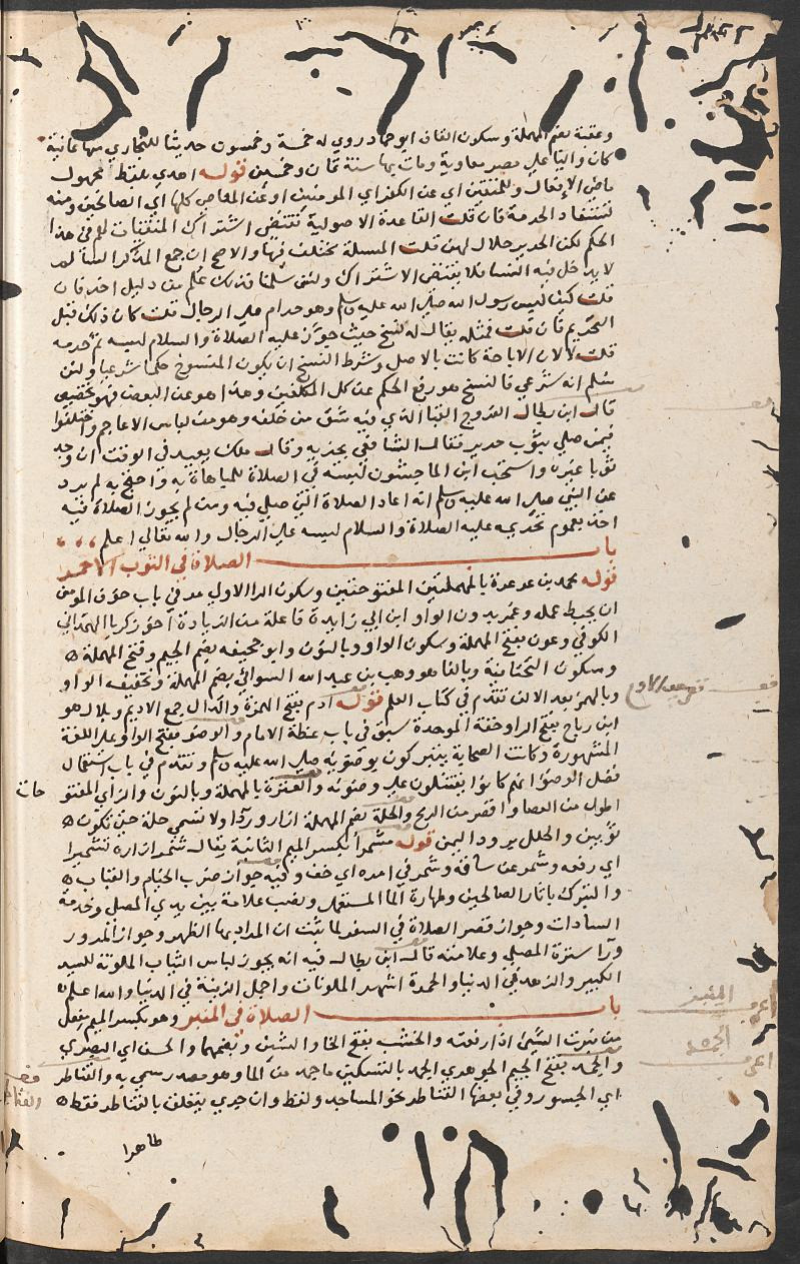 وعقبة بضم المهملة وسكون القاف ابو حماد روي له خمسة وخمسون حديثا للبخاري منها ثمانية
كان واليا علي مصر لمعاوية ومات بها سنة ثمان وخمسين قوله اهدي بلفظ مجهول
ماضي الافعال وللمتقين اي عن الكفر اي المومنين او عن المعاصي كلها اي الصالحين ومنه
تستفاد الحرمة فان قلت القاعدة الاصولية تقتضي اشتراك المتقيات لهم في هذا
الحكم لكن الحرير حلال لهن قلت المسلة مختلف فيها والاصح ان جمع المذكر السالم
لا يدخل فيه النسا فلا يقتضي الاشتراك ولئن سلمنا فذلك علم من دليل اخر فان
قلت كيف لبس رسول الله صلي الله عليه وسلم وهو حرام علي الرجال قلت كان ذلك قبل
التحريم فان قلت فمثله يقال له نسخ حيث جوز عليه الصلاة والسلام لبسه ثم حرمه
قلت لا لان الاباحة كانت بالاصل وشرط النسخ ان يكون المنسوخ حكما شرعيا ولئن
سلم انه شرعي فالنسخ هو رفع الحكم عن كل المكلفين وهذا هو عن البعض فهو تخصيص
قال ابن بطال الفروج القبا الذي فيه شق من خلفه وهو من لباس الاعاجم واختلفوا
فيمن صلي بثوب حرير فقال الشافعي يجزيه وقال ملك يعيد في الوقت ان وجد
ثوبا غيره واستحب ابن الماجشون لبسه في الصلاة للمباهاة به واحتج به لم يرد
عن النبي صلي الله عليه وسلم انه اعاد الصلاة التي صلي فيه ومن لم يجوز الصلاة فيه
اخذ بعموم تحريمه عليه الصلاة والسلام لبسه علي الرجال والله تعالي اعلم
باب الصلاة في الثوب الاحمر
قوله محمد بن عرعرة بالمهملتين المفتوحتين وسكون الرا الاولي مر في باب خوف المومن
ان يحبط عمله وعمر بدون الواو ابن ابي زايدة فاعلة من الزيادة اخو زكريا الهمداني
الكوفي وعون بفتح المهملة وسكون الواو وبالنون وابو جحيفه بضم الجيم وفتح المهملة
وسكون التحتانية وبالفا هو وهب بن عبد الله السوائي بضم المهملة وتخفيف الواو
وبالهمز بعد الالف تقدم في كتاب العلم قوله ادم بفتح الهمزة والدال جمع الاديم وبلال هو
ابن رباح بفتح الرا وخفة الموحدة سبق في باب عظة الامام والوضو بفتح الواو علي اللغة
المشهورة وكانت الصحابة يتبركون بوضوئه صلي الله عليه وسلم وتقدم في باب استعمال
فضل الوضو انهم كانوا يقتتلون علي وضوئه والعنزة بالمهملة وبالنون والزاي المفتو
حات
اطول من العصا واقصر من الرمح والحلة بضم المهملة ازار وردا ولا تسمي حلة حتي تكون
ثوبين والحلل برود اليمن قوله مشمرا بكسر الميم الثانية يقال شمر ازاره تشميرا
اي رفعه وشمر عن ساقه وشمر في امره اي خف وفيه جواز ضرب الخيام والقباب
والتبرك باثار الصالحين وطهارة الما المستعمل ونصب علامة بين يدي المصلي وخدمة
السادات وجواز قصر الصلاة في السفر لما ثبت ان المراد بها الظهر وجواز المرور
ورا سترة المصلي وعلامته قال ابن بطال فيه انه يجوز لباس الثياب الملونة للسيد
الكبير والزهد في الدنيا والحمرة اشهر الملونات واجل الزينة في الدنيا والله اعلم
باب الصلاة في المنبر وهو بكسر الميم مفعل
من نبرت الشيئ اذا رفعته والخشب بفتح الخا والشين وبضمهما والحسن اي البصري
والجمد بفتح الجيم الجوهري الجمد بالتسكين ما جمد من الما وهو مصدر سمي به والقناطر
اي الجسور وفي بعضها القناطر نحو المساجد ولفظ وان جري يتعلق بالقناطر فقط
طاهرا